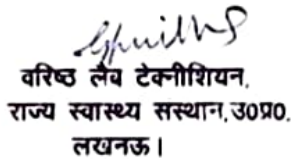 वरिष्ठ लैब टेक्नीशियन,
राज्य स्वास्थ्य संस्थान, उ0प्र0.
लखनऊ।